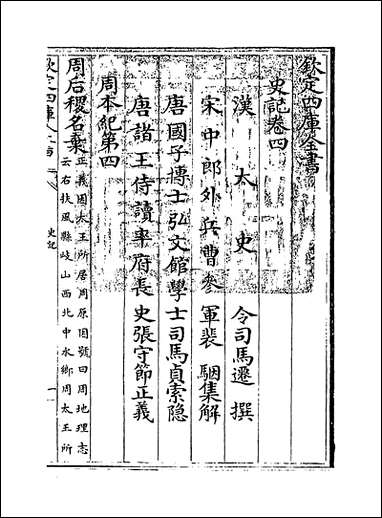 欽定四庫全書
史記卷四
漢太史令司馬遷撰
宋中郎外兵曹參軍裴駰集解
唐國子博士弘文館學士司馬貞索隱
唐諸王侍讀率府長史張守節正義
周本紀第四
周后稷名棄正義因太王所居周原因號曰周地理志
云右扶風縣岐山西北中水鄉周太王所
欽定四庫全書
史記
一